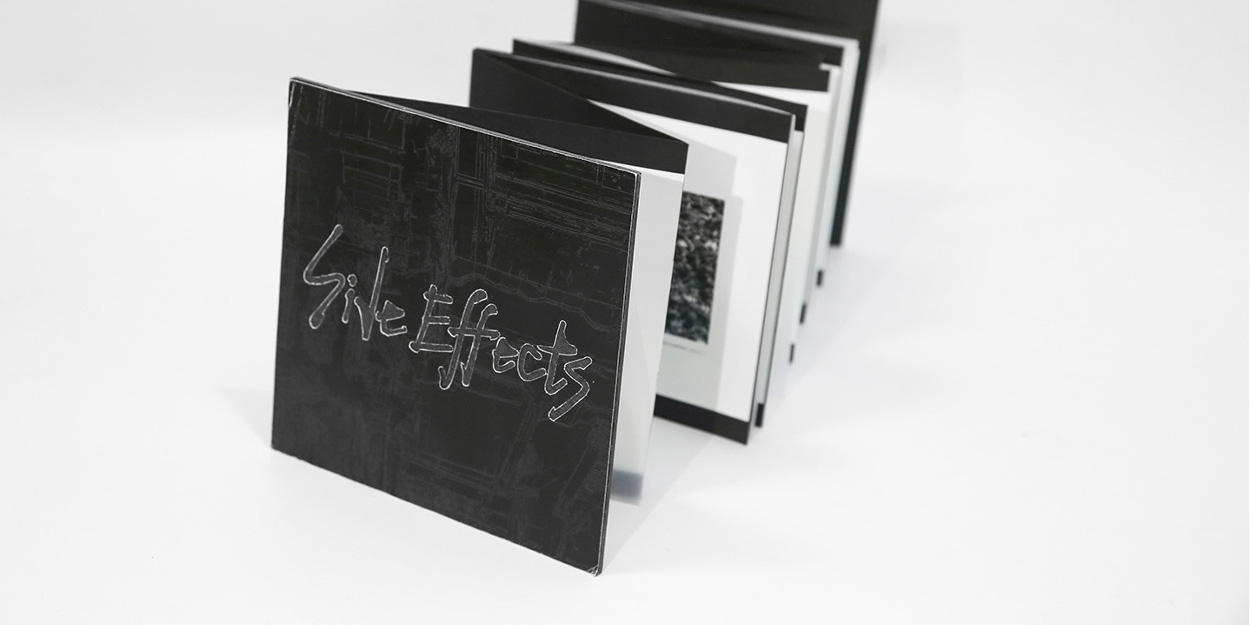 Side Effects